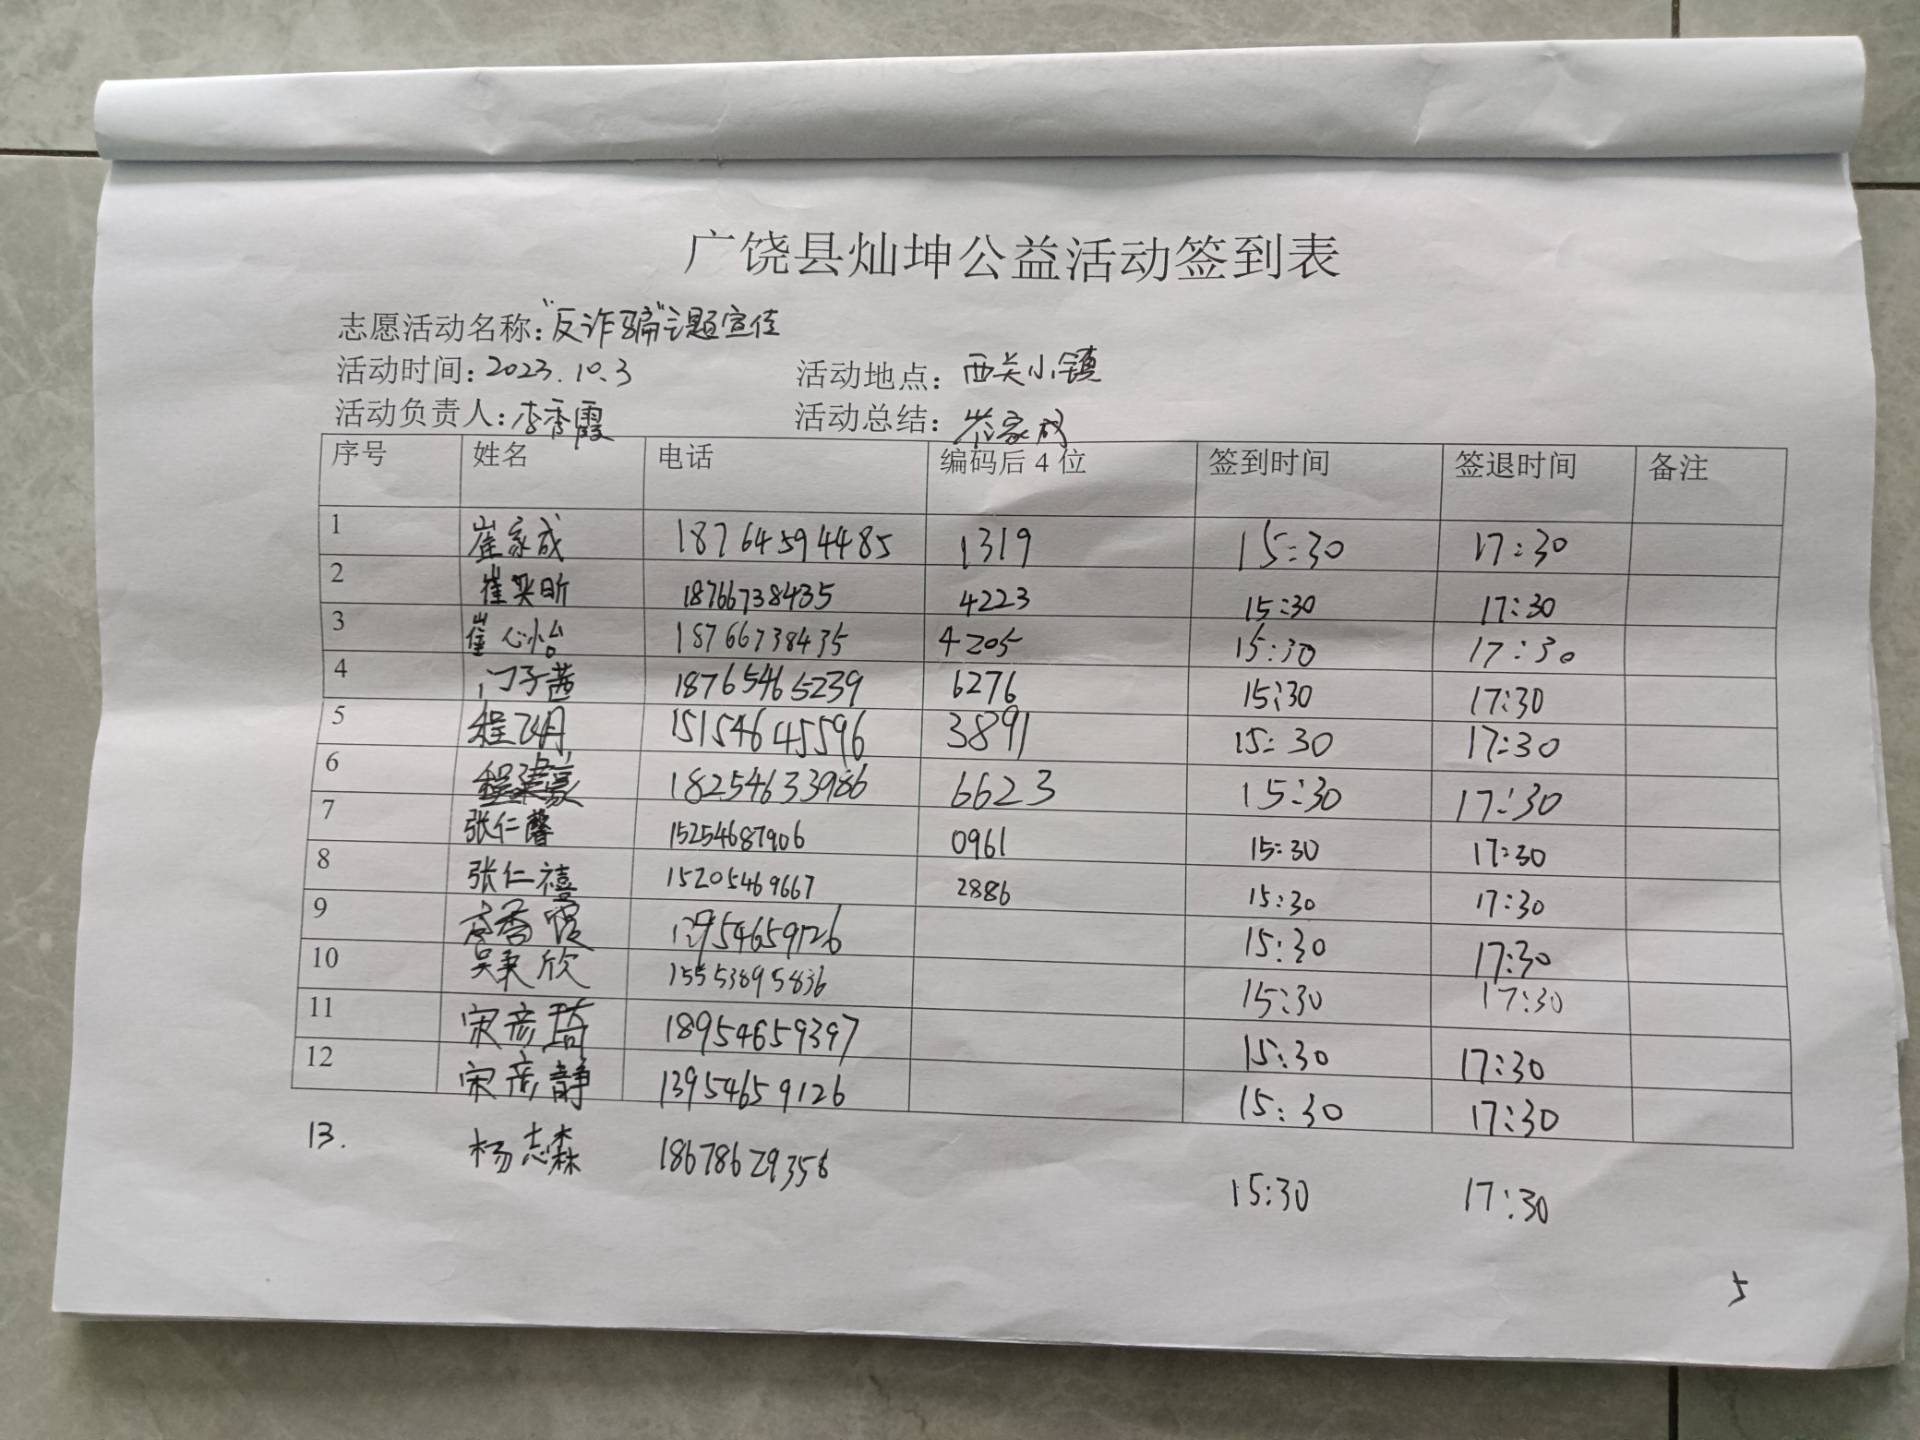 广饶县灿坤公益活动签到表
志愿活动名称：“反诈骗”主题宣传
活动时间：2023.10.3 活动地点：西关小镇
活动负责人：李秀霞 活动总结：崔家成
序号 姓名 电话 编码后4位 签到时间 签退时间 备注
1 崔家成 18764594485 1319 15:30 17:30
2 崔 昕 18766738435 4223 15:30 17:30
3 崔心怡 18766738435 4205 15:30 17:30
4 门子茜 18765465239 6276 15:30 17:30
5 程 15154645596 3891 15:30 17:30
6 18254633986 6623 15:30 17:30
7 张仁馨 15254687906 0961 15:30 17:30
8 张仁禧 15205469667 2886 15:30 17:30
9 李秀霞 13954659126 15:30 17:30
10 吴秉欣 15553895836 15:30 17:30
11 宋彦琦 18954659397 15:30 17:30
12 宋彦静 13954659126 15:30 17:30
13. 杨志森 18678629356 15:30 17:30
5